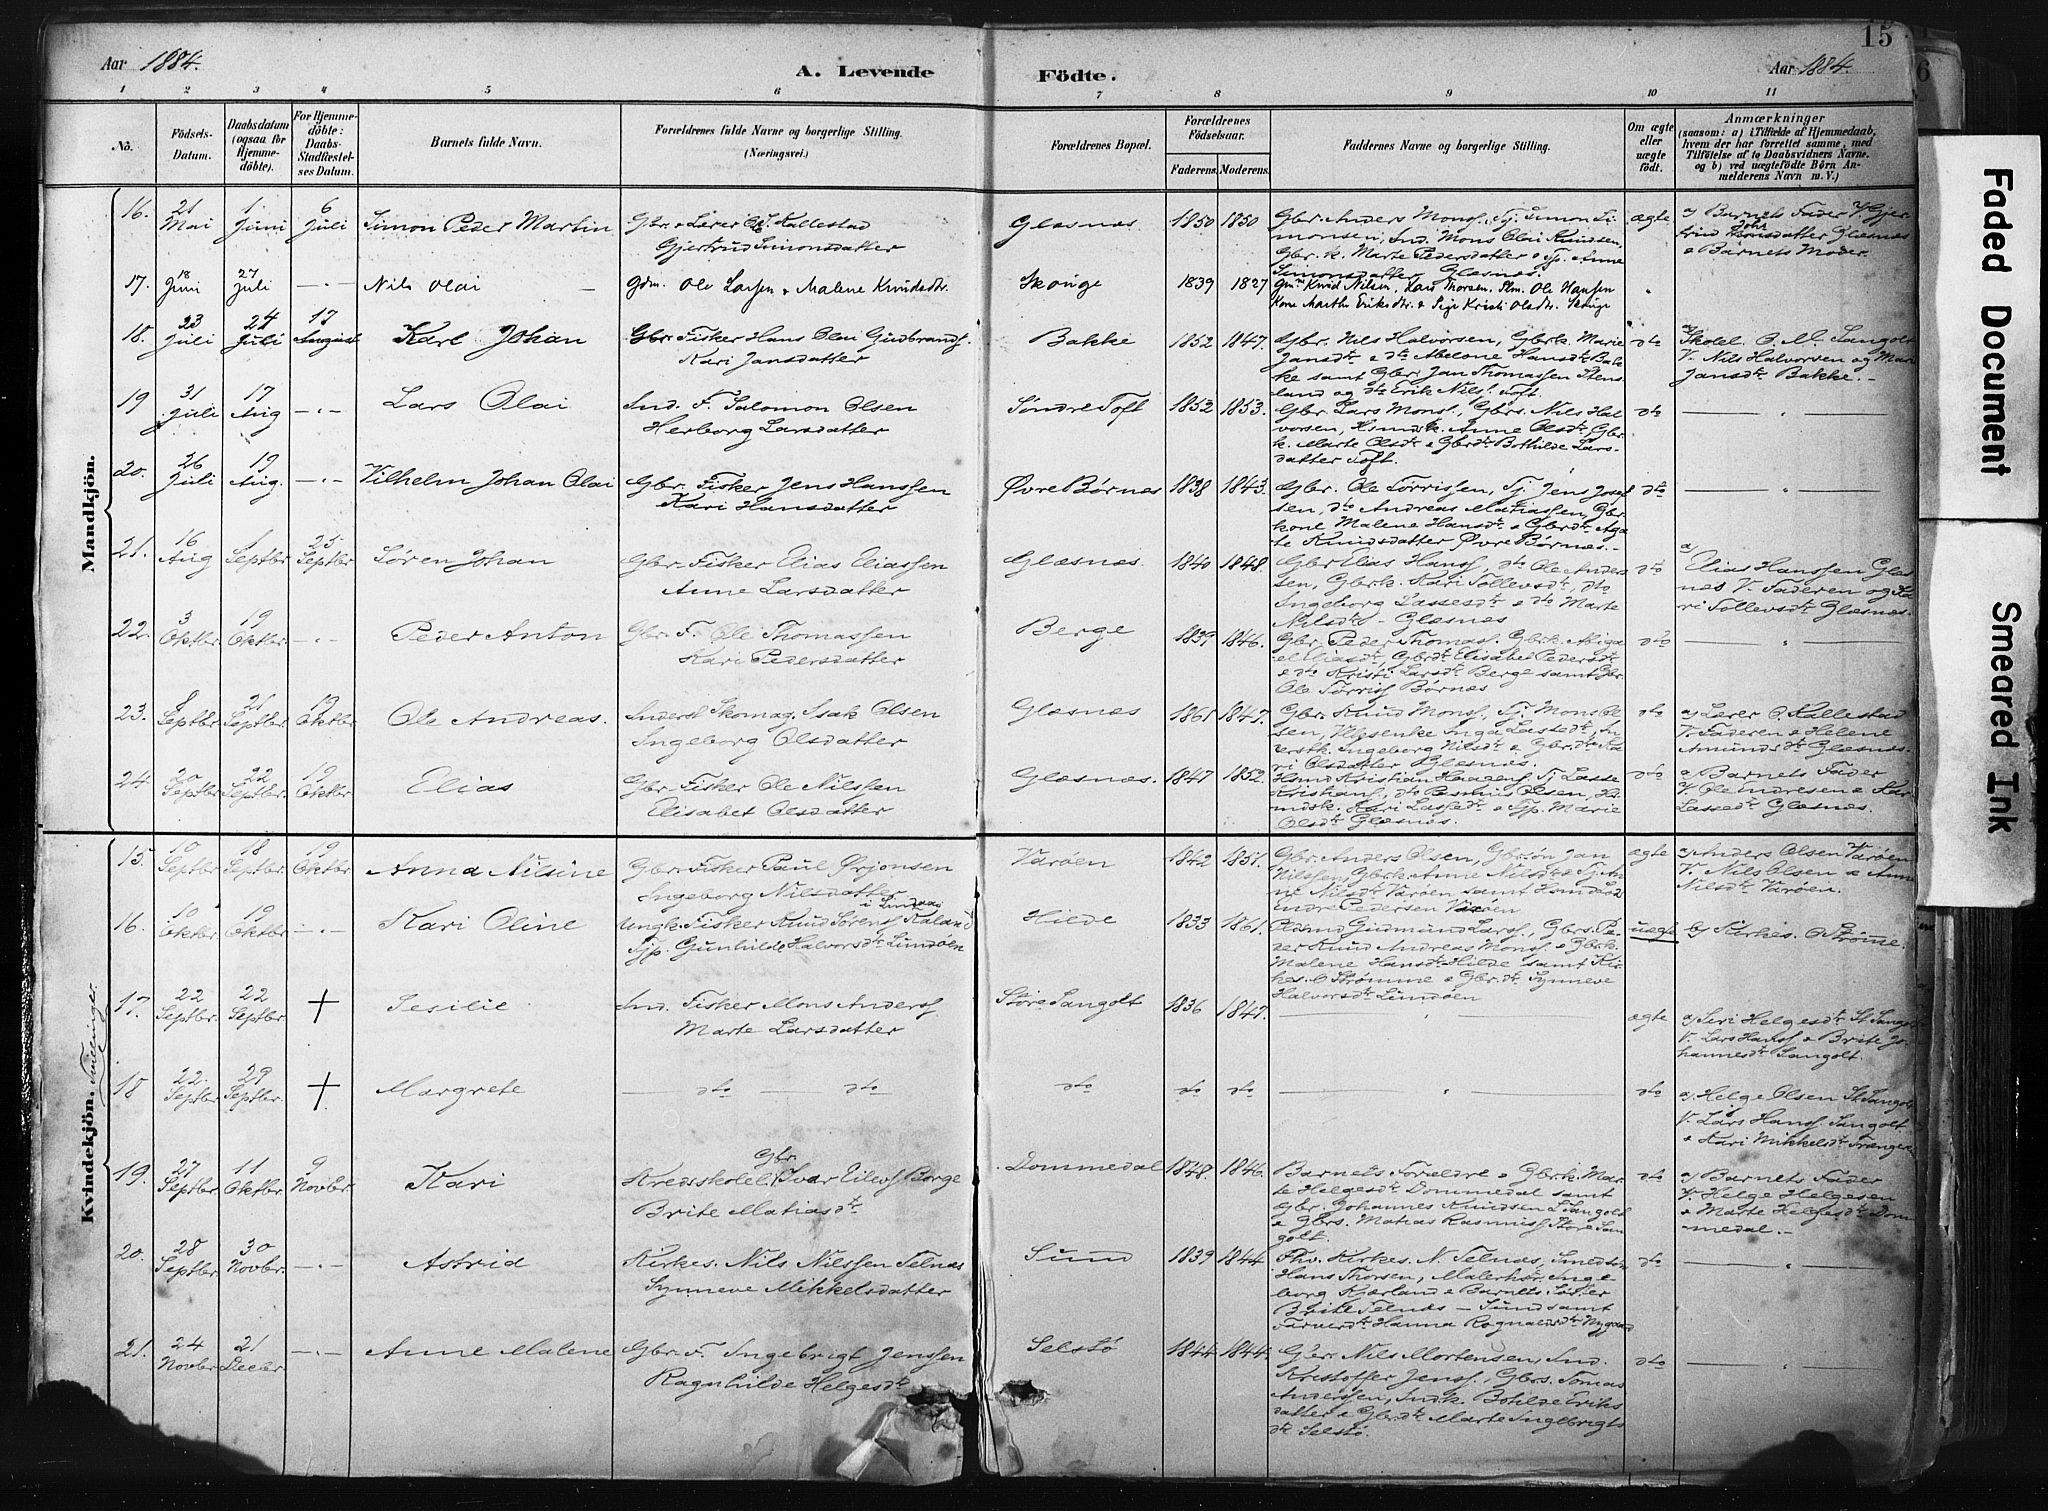 15
Aar 1884.
A. Levende
Födte.
Aar 1884.
1 2 3 4 5 6 7 8 9 10 11
No.
Födsels-Datum.
Daabsdatum (ogsaa för Hjemme-döbte).
For Hjemme-döbte: Daabs-Stadfæstel-ses Datum.
Barnets fulde Navn.
Forældrenes fulde Navne og borgerlige Stilling.
(Næringsvei.)
Forældrenes Bopæl.
Forældrenes Födselsaar.
Faderens. Moderens.
Faddernes Navne og borgerlige Stilling.
Om ægte eller uægte födt.
Anmærkninger
(saasom: a) i Tilfælde af Hjemmedaab, hvem der har forrettet samme, med Tilföielse af to Daabsvidners Navne. og b) ved uægtefödte Börn An-melderens Navn m. V.)
Mandkjön.
16. 21 Mai 1 Juni 6 Juli Simon Peder Martin Gbr. & Lærer O. J. Kallestad
Gjertrud Simonsdatter
Glæsnæs 1850 1850 Gbr Anders Monss., Tj. Simon Si-
monsen, Ind. Mons Olai Knudsen,
Gbr. k. Marte Pedersdatter & Tp. Anne
Simonsdatter Glæsnes.
ægte a) Barnets Fader V. Gjer
datter Glæsnes
& Barnets Moder.
17. 18 Juni 27 Juli -"- Nils Olai Gdm. Ole Larsen & Malene Knudsdtr.
Skoge 1839 1827 Gmn Knud Nilsen, Lars Thorsen, Ole Hansen
Kone Marthe Eriksdtr. & Pige Kristi Olsdtr. Skoge
18. 23 Juli 24 Juli 17 August Karl Johan Gbr. Fisker Hans Olai Gudbrands.
Kari Jansdatter
Bakke 1852 1847. Gbr. Nils Halvorsen, Gbrk. Marie
Jansdtr & dto Abelone Hansdtr Bak-
ke samt Gbr. Jan Thomassen Stens-
land og dto Erik Nils. Toft.
dto a) Skolel. O. M. Langolt
V. Nils Halvorsen og Mari
Jansdtr Bakke.-
19 31 Juli 17 Aug -"- Lars Olai Ind. F. Salomon Olsen
Herborg Larsdatter
Søndre Toft 1852 1853. Gbr. Lars Mons., Gbrs. Nils Hal
vorsen, Anne Olsdtr, Gbr.
k. Marte Olsdtr & Gbrdtr Bothilde Lars-
datter Toft.
dto — " —
20. 26 Juli 19 Aug. -"- Vilhelm Johan Olai Gbr. Fisker Jens Hanssen
Kari Hansdatter
Øvre Børnes 1838 1843. Gbr. Ole Tørrissen, Tj. Jens Josef
sen, dto Andreas Matiassen, Gbr.
kone Malene Hansdtr & Gbrdtr Aga
te Knudsdatter Øvre Børnes.-
dto — " —
21. 16 Aug 1 Septbr 25 Septbr Søren Johan Gbr. Fisker Elias Eliassen
Anne Larsdatter
Glæsnæs 1840 1848. Gbr Elias Hanss., dto Ole Anders
sen, Gbrk. Kari Tollevsdtr, dto
Ingeborg Lassesdtr & dto Marte
Nilsdtr - Glæsnæs
dto a) Elias Hanssen Glæs
næs V. Faderen og Ka
ri Tollevsdtr Glæsnæs.
22. 3 Oktbr 19 Oktbr. -"- Peder Anton Gbr. F. Ole Thomassen
Kari Pedersdatter
Berge 1839 1846. Gbr. Peder Thomass. Gbrk. Abiga
el Eliasdtr, Gbrdtr. Elisabet Pedersdtr
& dto Kristi Larsdtr Berge samt Gbr.
Ole Tørriss. Børnes
dto — " —
23. 8 Septbr 21 Septbr 19 Oktbr. Ole Andreas. Inderst Skomag. Isak Olsen
Ingeborg Olsdatter
Glæsnæs 1865 1847. Gbr. Knud Monss., Tj. Mons Ol
sen, Inga Lassedtr, In
derstk. Ingeborg Nilsdtr & Gbrdtr Ka
ri Olsdatter Glæsnes.
dto a) Lærer O. Kallestad
V. Faderen & Helene
Amundsdtr Glæsnæs.
24. 20 Septbr. 22 Septbr. 19 Oktbr. Elias Gbr. Fisker Ole Nilssen
Elisabet Olsdatter
Glæsnæs. 1847 1852. Kristian Haagens. Tj Lasse
Kristians., dto Rasmus Olsen,
Kari Lassedtr & Tjp. Marie
Olsdtr Glæsnes.
dto a) Barnets Fader
V. Ole Andresen & Kari
Lassedtr Glæsnæs.
Kvindekjön.
Tvillinger.
15. 10 Septbr 18 Septbr. 19 Oktbr. Anna Nilsine Gbr. Fisker Paul Ørjonsen
Ingeborg Nilsdatter
Varøen 1842 1851. Gbr. Anders Olsen, Gbrsøn Jan
Nilssen, Gbrk. Anne Nilsdtr & Tj. An
ne Nilsdtr Varøen samt
Endre Pedersen Varøen
ægte a) Anders Olsen Varøen
V. Nils Olsen & Anne
Nilsdtr Varøen.
16. 10 Oktbr 19 Oktbr. -"- Kari Oline Ungk. Fisker Knud Sørens. Kaland i Lindaas
Tjp. Gunhilde Halvorsdtr Lindøen
Hilde 1833 1861. Gudmund Larss., Gbrs. Pe-
der Knud Andreas Monss. & Gbrk.
Malene Hansdtr Hilde samt Kir-
kes. O Strømme & Gbr. dtr. Synneve
Halvorsdtr Lindøen
uægte b) Kirkes. O Strømme.
17. 22 Septbr. 22 Septbr. + Sesilie Ind. Fisker Mons Anderss
Marte Larsdatter
Store Langolt 1836 1847. — " —
ægte a) Siri Helgesdtr St Langolt
V. Lars Hanss & Brite Jo-
hannesdtr Langolt.
18 22. Septbr 29 Septbr. + Margrete — dto — dto
dto dto dto — " —
dto a) Helge Olsen St Langolt
V. Lars Hanss Langolt
& Kari Mikkelsdtr Trænger
19. 27 Septbr 11 Oktbr 9 Novbr. Kari Kredsskolel. Gbr. Ivar Eilevs Borge
Brite Matiasdtr
Dommedal 1848. 1846. Barnets Forældre & Gbrk. Mar-
te Helgesdtr Dommedal samt
Gbr. Johannes Knudsen L Langolt
& Gbrs. Matias Rasmuss Store Lan
golt.
dto a) Barnets Fader
V. Helge Helgesen
& Marte Helgesdtr Dom
medal.-
20. 28 Septbr 30 Novbr. -"- Astrid Kirkes. Nils Nilssen Telnæs
Synneve Mikkelsdatter
Sund 1839 1844 Fhv. Kirkes. N. Telnæs, Smed
Hans Thorsen, Inge
borg Kjærland & Barnets Søster
Brite Telnæs - Sund samt
Hanna Rognaldsdtr Nygaard
dto — " —
21. 24 Novbr 21 Decbr -"- Anne Malene Gbr. F. Ingebrigt Jenssen
Ragnhilde Helgesdtr
Selstø 1844 1844. Gbr. Nils Mortensen, Ind.
Kristoffer Jenss., Gbrs. Tomas
Anderssen, Indk. Botilde Eriks
datter & Gbr. dtr Marte Ingebrigts
dtr Selstø.
dto — " —
Faded Document
Smeared Ink